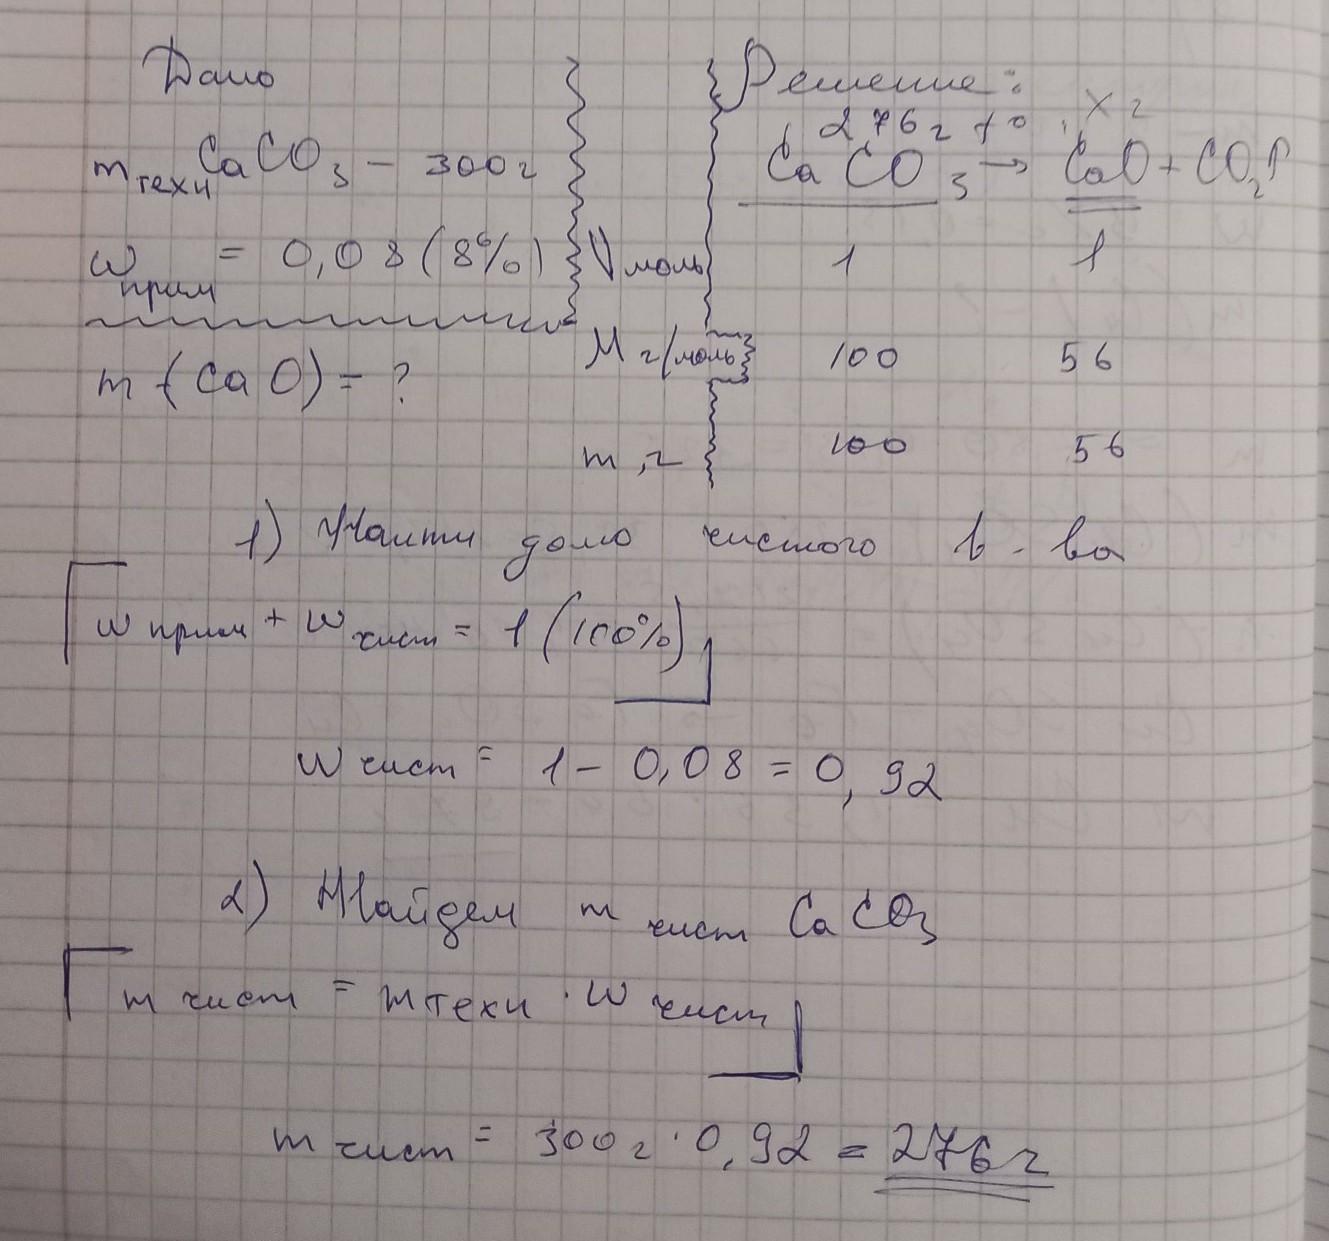 Дано
m техн CaCO3 – 300г
ω прим = 0,08 (8%)
m (CaO) = ?
Решение:
276г t° x г
CaCO3 → CaO + CO2↑
V моль 1 1
M г/моль 100 56
m, г 100 56
1) Найти долю чистого в-ва
ω прим + ω чист = 1 (100%)
ω чист = 1 – 0,08 = 0,92
2) Найдем m чист CaCO3
m чист = m техн · ω чист
m чист = 300г · 0,92 = 276г